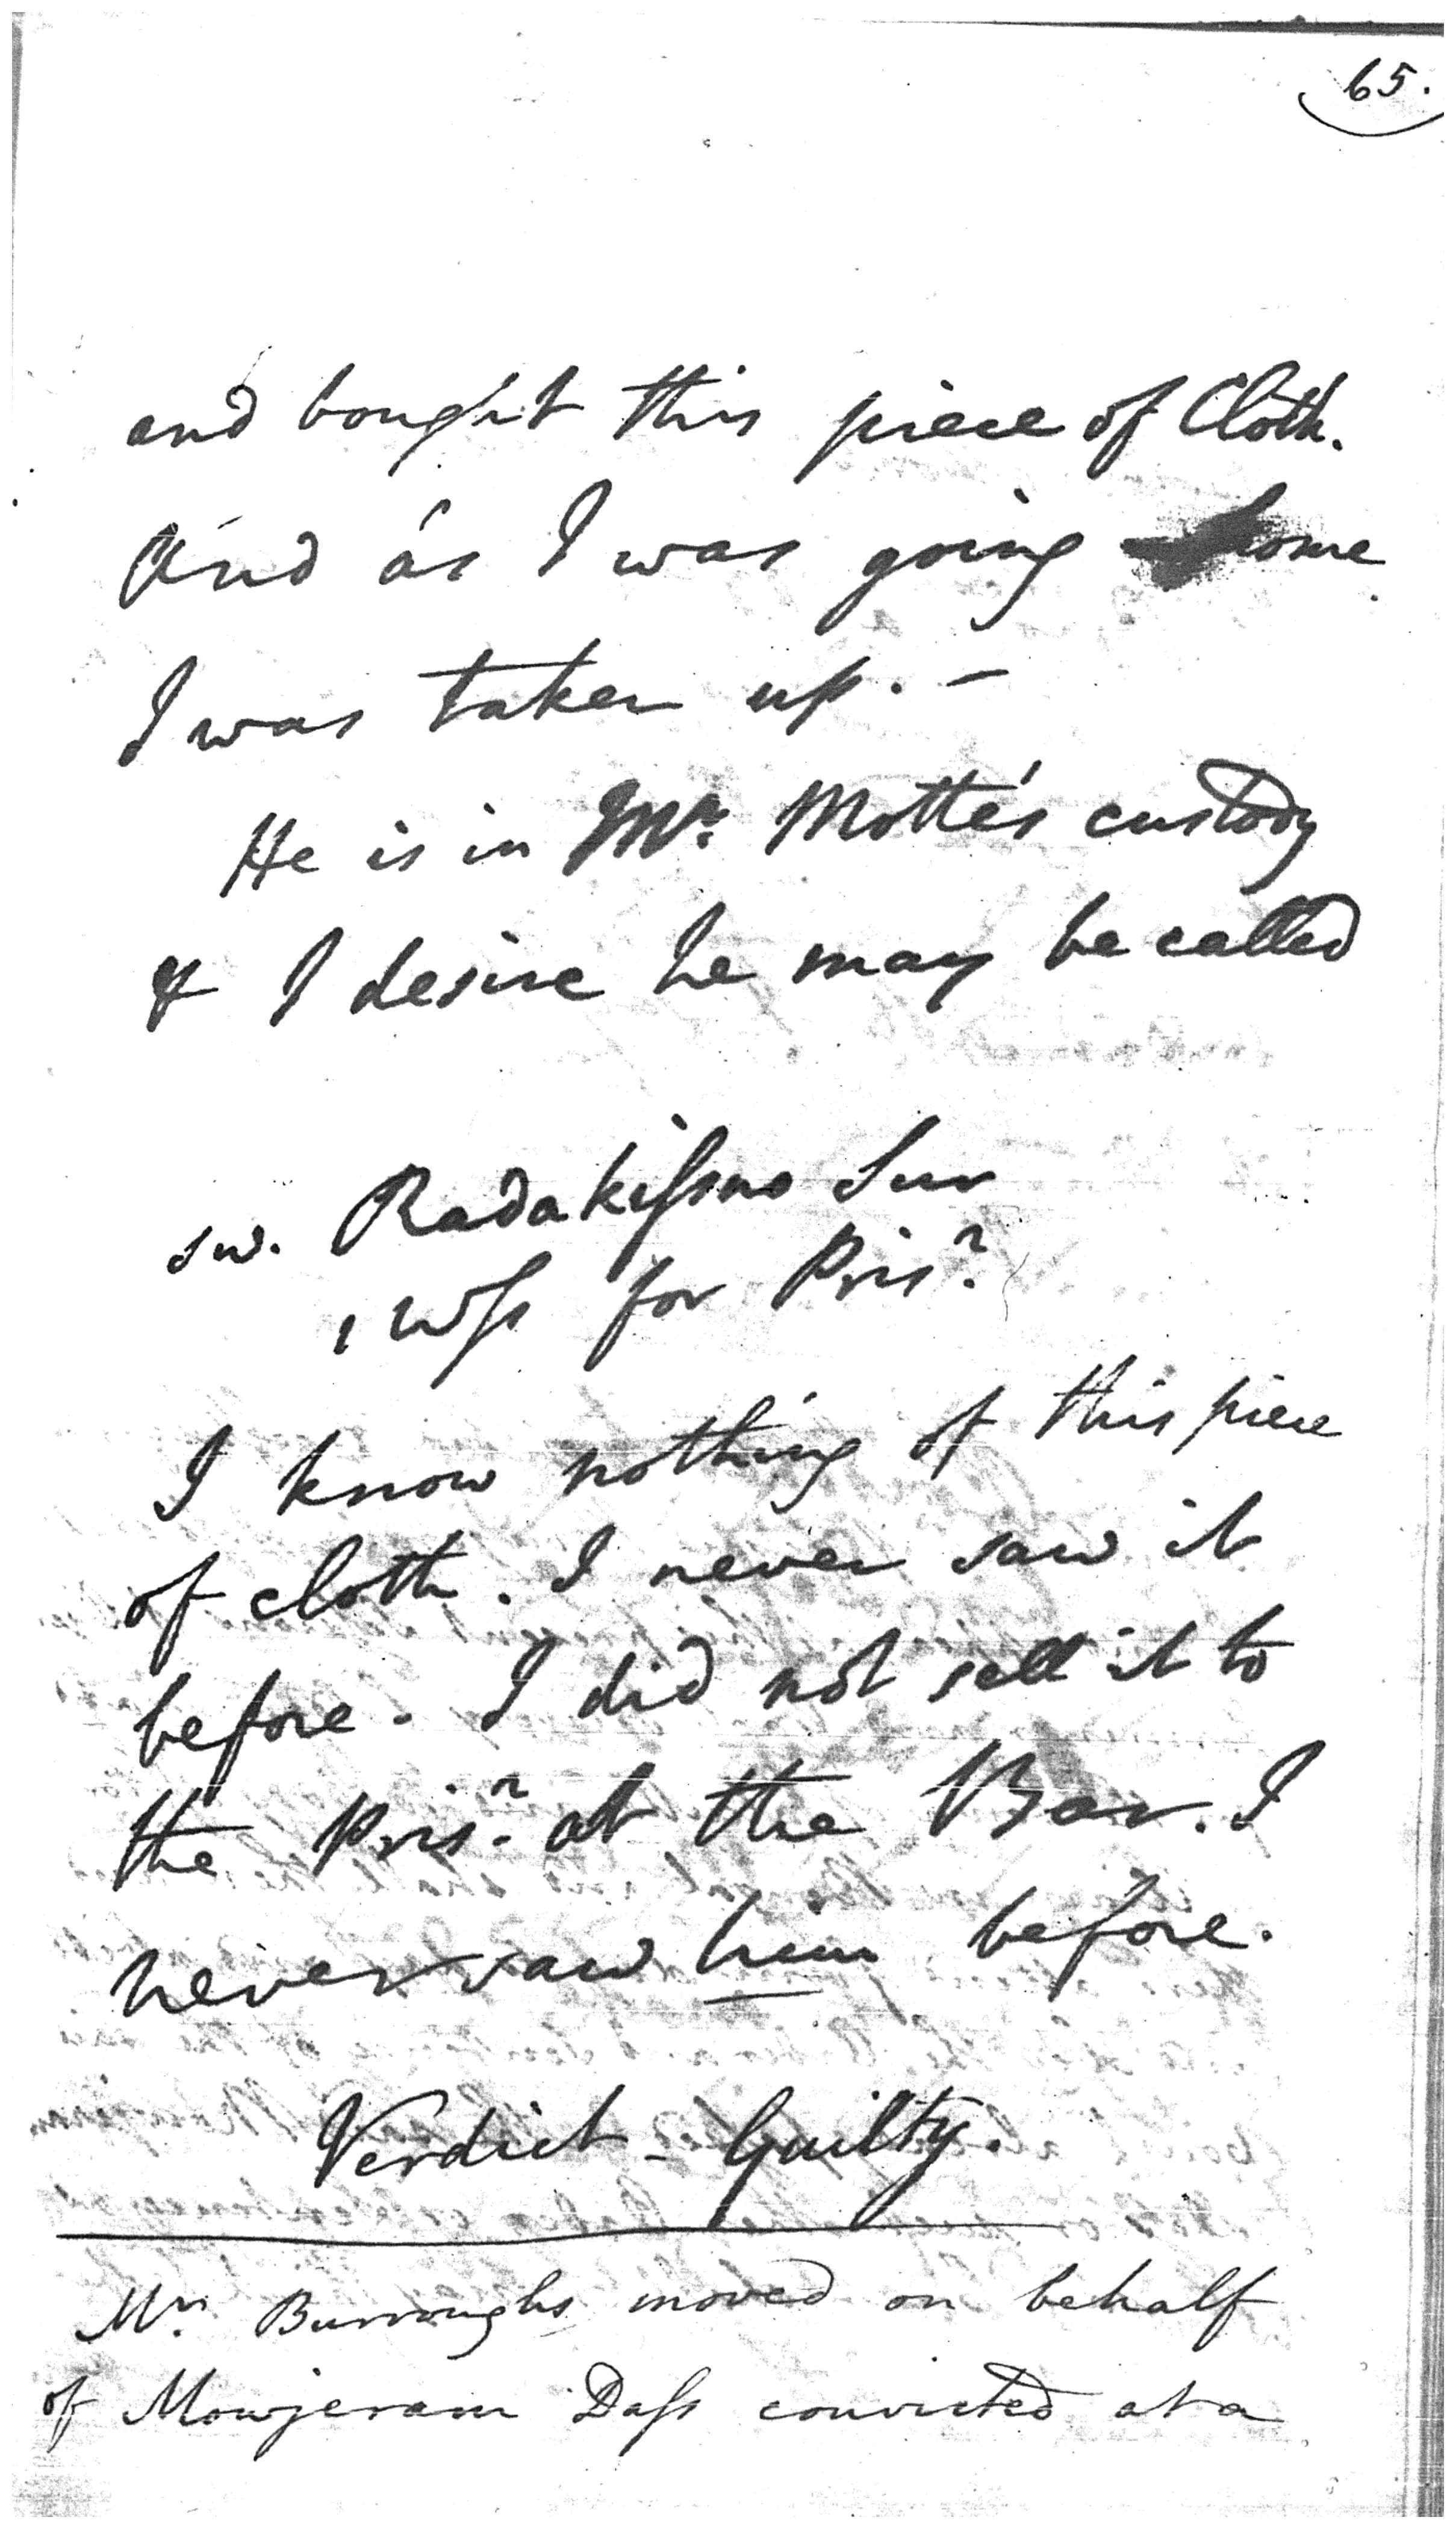 65.
and bought this piece of Cloth.
And as I was going home
I was taken up. –
He is in Mr. Motte's custody
& I desire he may be called
sw. Radakissno Sur
1 Wss for Prisr.
I know nothing of this piece
of cloth. I never saw it
before. I did not sell it to
the Prisr. at the Bar. I
never saw him before.
Verdict – Guilty.
Mr. Burroughs moved on behalf
of Mowjeram Dass convicted at a